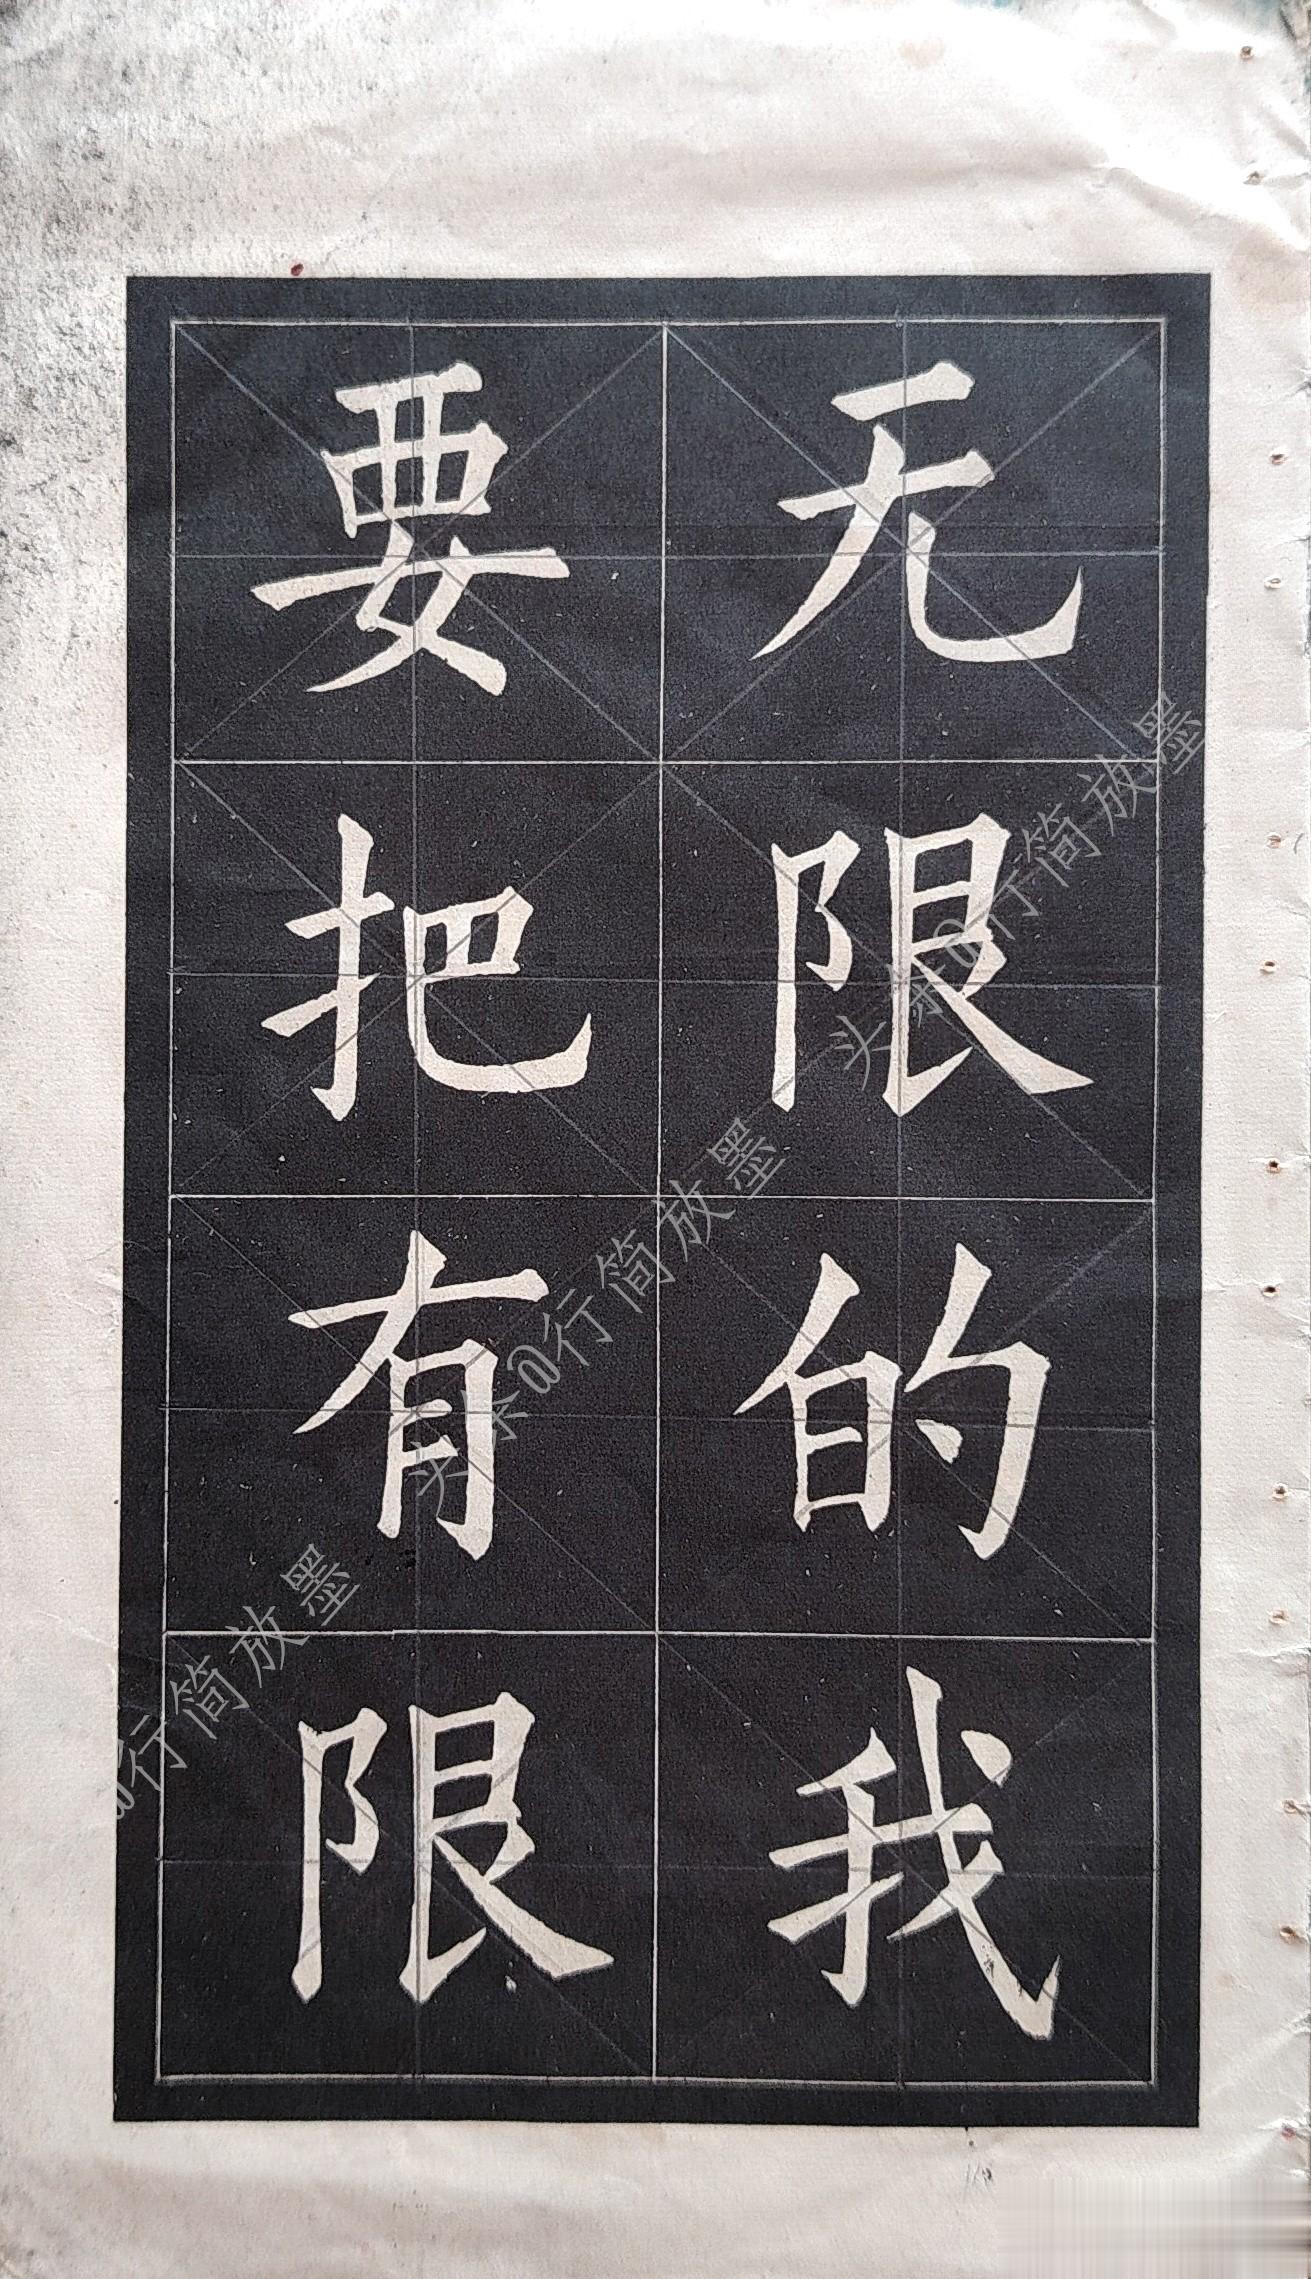 无限的我
要把有限
头条@行简放墨
头条@行简放墨
@行简放墨